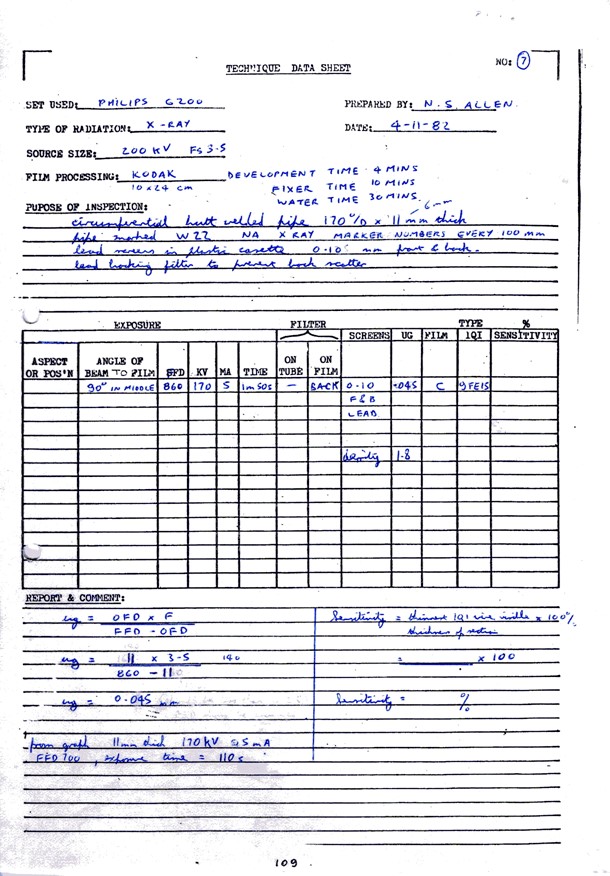 TECHNIQUE DATA SHEET
NO: 7
SET USED: PHILIPS G200
PREPARED BY: N.S. ALLEN.
TYPE OF RADIATION: X-RAY
DATE: 4-11-82
SOURCE SIZE: 200 KV FS 3.5
FILM PROCESSING: KODAK DEVELOPMENT TIME 4 MINS
10 x 24 cm FIXER TIME 10 MINS
WATER TIME 30 MINS.
PUPOSE OF INSPECTION:
circumferential butt welded pipe 170 O/D x 11 mm thick
pipe marked W22 NA X RAY MARKER NUMBERS EVERY 100 mm
lead screens in plastic casette 0.10 mm front & back.
lead backing filter to prevent back scatter
EXPOSURE FILTER TYPE %
SCREENS UG FILM 1QI SENSITIVITY
ASPECT OR POS'N ANGLE OF BEAM TO FILM FFD KV MA TIME ON TUBE ON FILM
90° IN MIDDLE 860 170 5 1m 50s — BACK 0.10 .045 C 9FE15
F & B
LEAD
density 1.8
REPORT & COMMENT:
ug = OFD x F
FFD - OFD
Sensitivity = thinnest 1QI wire visible x 100%
thickness of section
ug = 11 x 3.5 140
860 - 11
= x 100
ug = 0.045 mm
Sensitivity = %
from graph 11mm thick 170 KV @ 5 mA
FFD 700, exposure time = 110 s
109